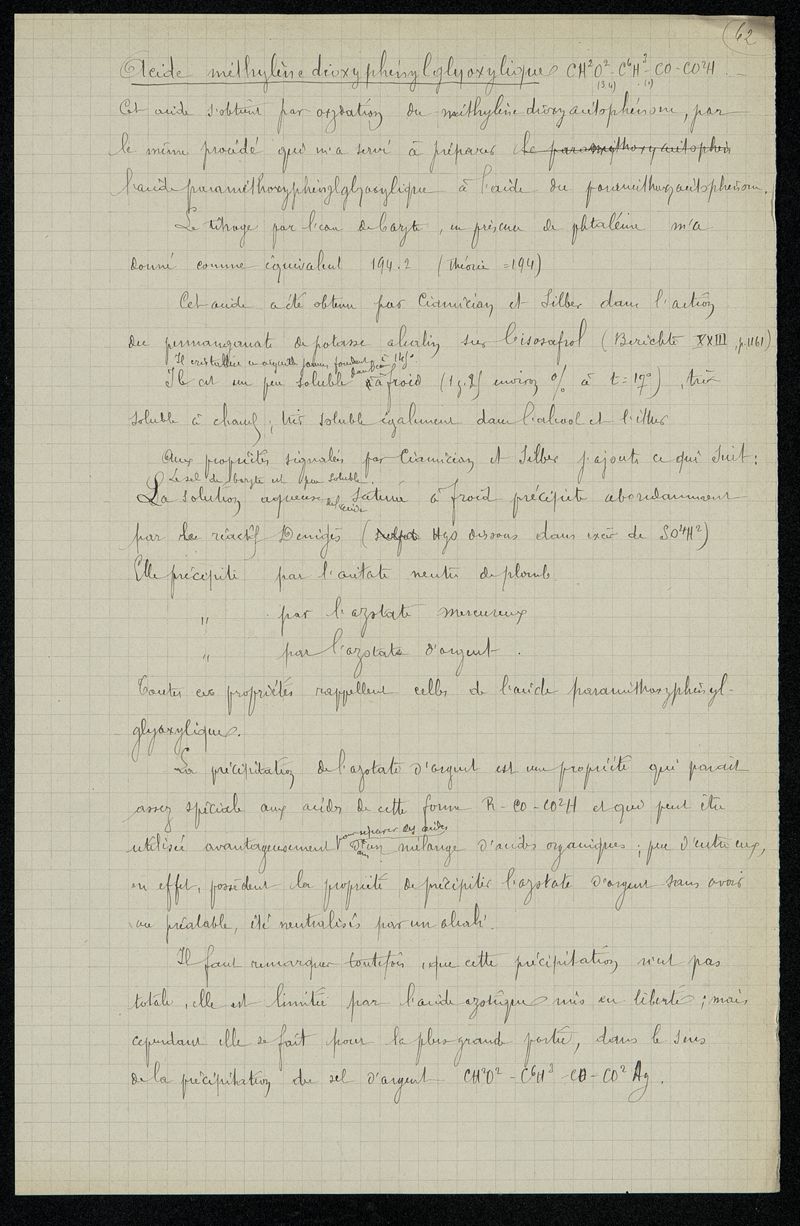 62
Acide méthylène dioxyphénylglyoxylique CH²O²-C⁶H³-CO-CO²H.
(3.4) (1)
Cet acide s'obtient par oxydation du méthylène dioxyacétophénone, par
le même procédé qui m'a servi à préparer le paraméthoxyacétophén
l'acide paraméthoxyphénylglyoxylique à l'aide du paraméthoxyacétophénone.
Le titrage par l'eau de baryte, en présence de phtaléine m'a
donné comme équivalent 194.2 (théorie =194)
Cet acide a été obtenu par Ciamician et Silber dans l'action
du permanganate de potasse alcalin sur l'isosafrol (Berichte XXIII, p. 1161)
Il cristallise en aiguilles jaunes fondant à 148°.
Il est un peu soluble dans l'eau à froid (1g.2 environ % à t=17°), très
soluble à chaud; très soluble également dans l'alcool et l'éther
Aux propriétés signalées par Ciamician et Silber j'ajoute ce qui suit:
Le sel de baryte est peu soluble.
La solution aqueuse de l'acide saturée à froid précipite abondamment
par le réactif Denigès (Sulfate HgO dissous dans excès de SO⁴H²)
Elle précipite par l'acétate neutre de plomb
" par l'azotate mercureux
" par l'azotate d'argent.
Toutes ces propriétés rappellent celles de l'acide paraméthoxyphényl-
glyoxylique.
La précipitation de l'azotate d'argent est une propriété qui paraît
assez spéciale aux acides de cette forme R-CO-CO²H et qui peut être
pour séparer ces acides
utilisée avantageusement d'un mélange d'acides organiques; peu d'entre eux,
en effet, possèdent la propriété de précipiter l'azotate d'argent sans avoir
au préalable, été neutralisés par un alcali.
Il faut remarquer toutefois que cette précipitation n'est pas
totale, elle est limitée par l'acide azotique mis en liberté; mais
cependant elle se fait pour la plus grande partie, dans le sens
de la précipitation du sel d'argent CH²O²-C⁶H³-CO-CO²Ag.